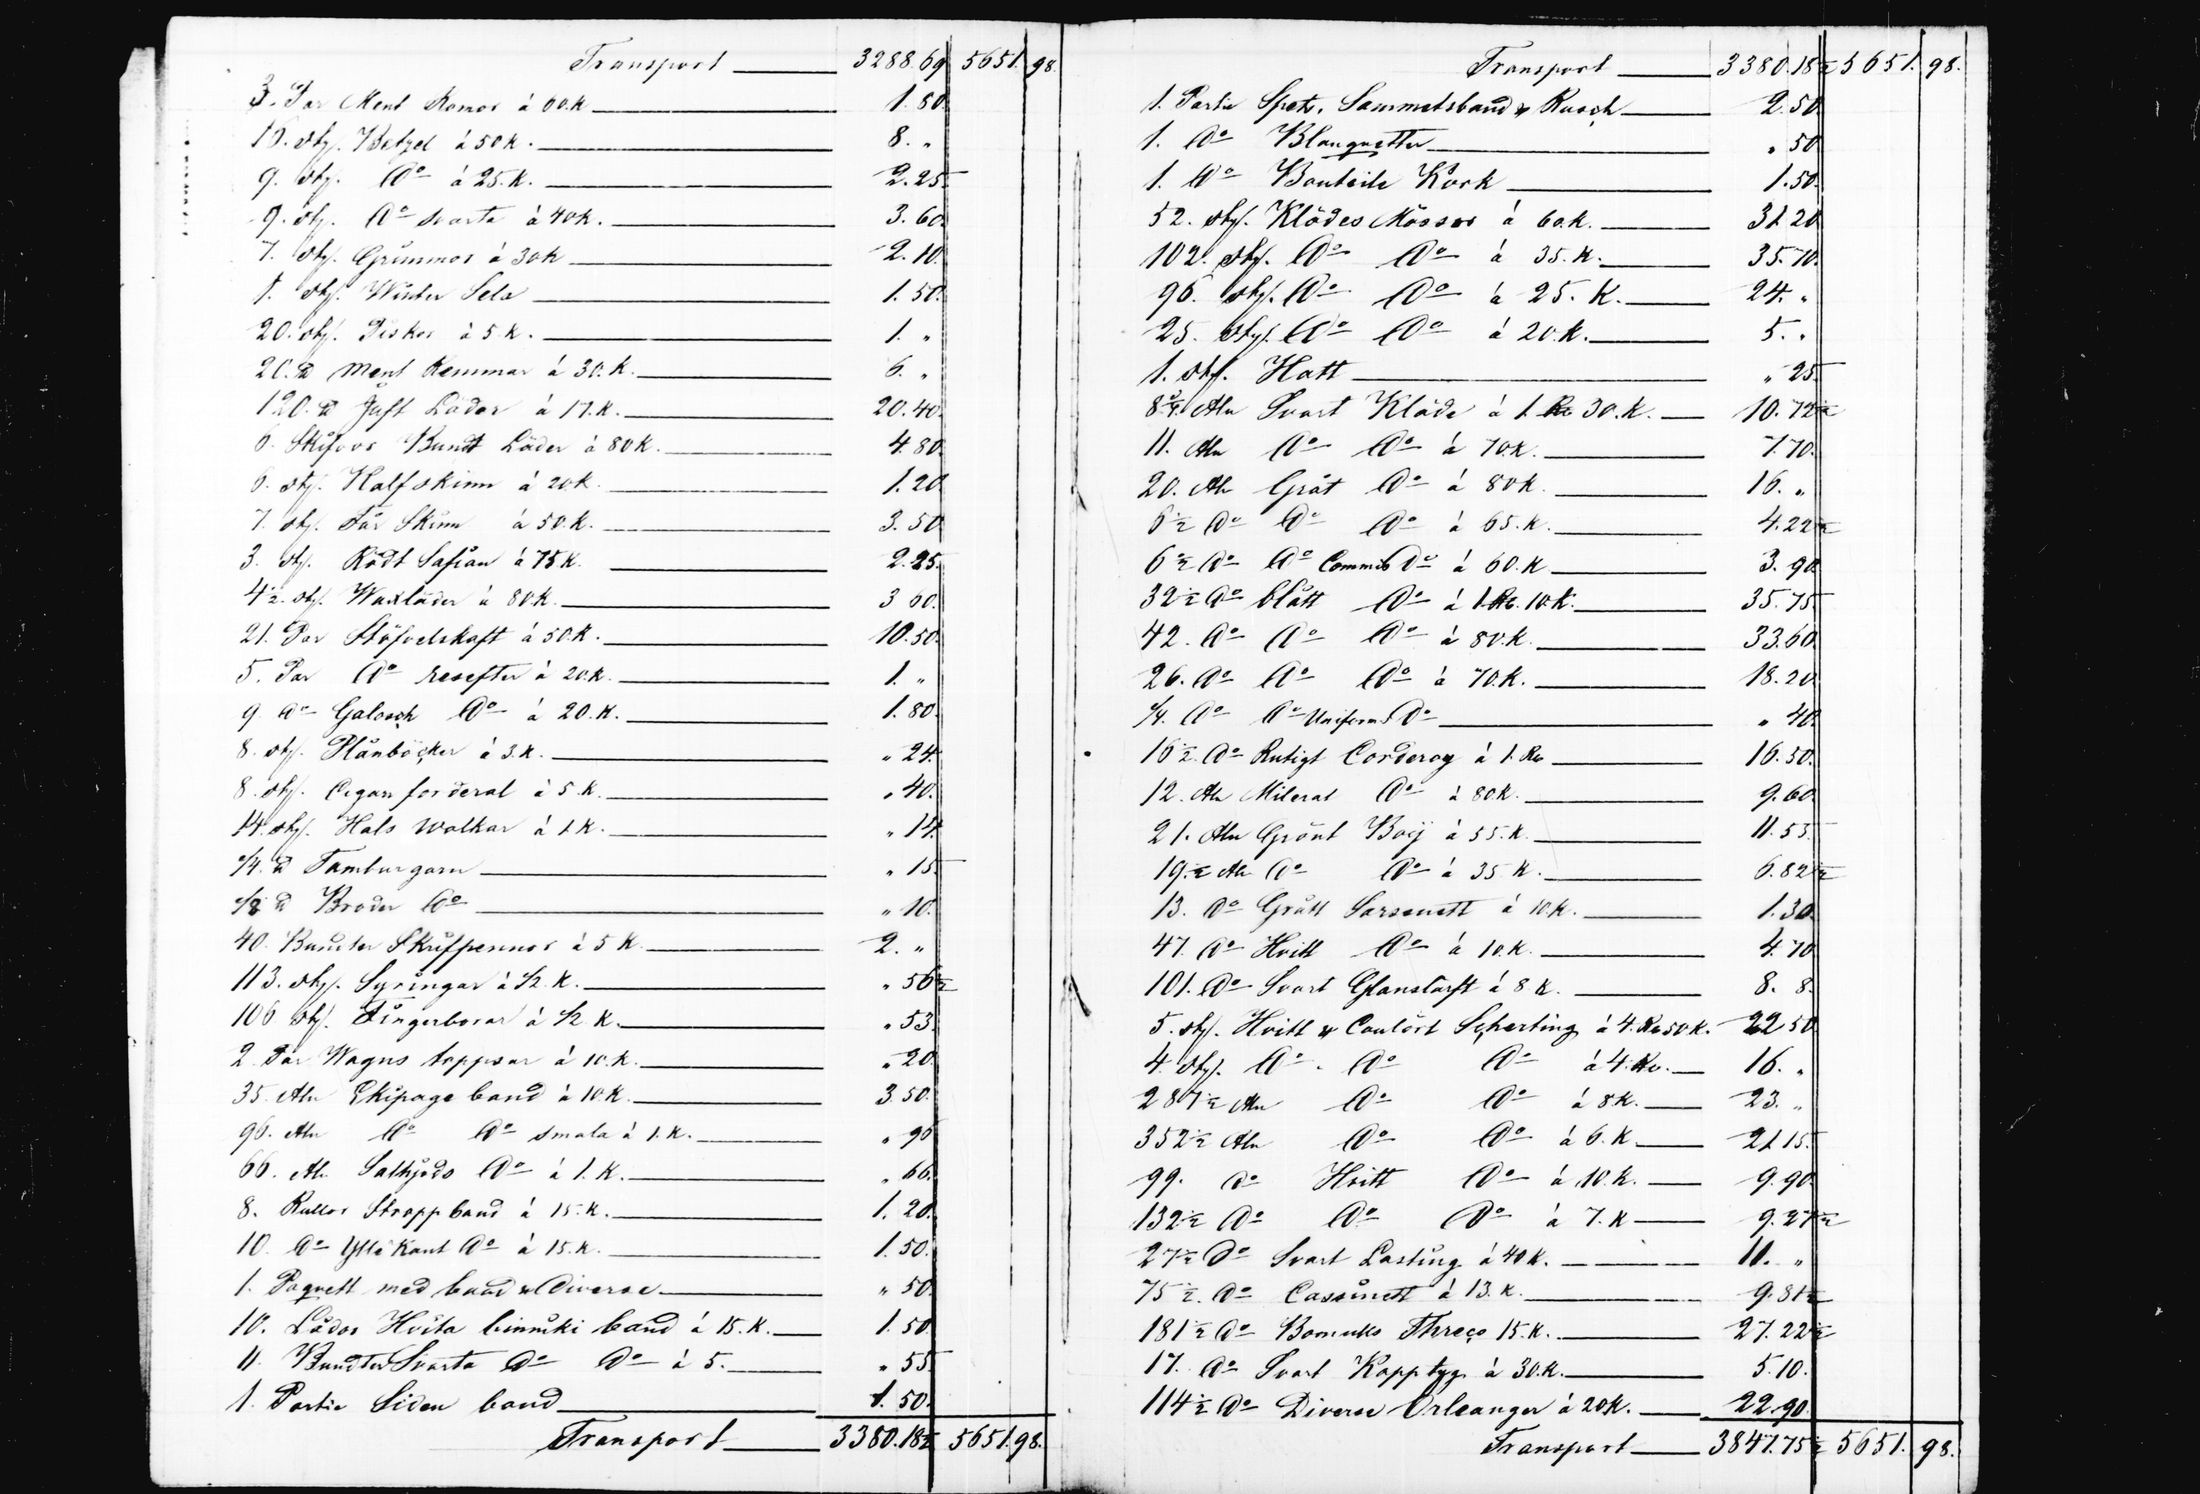 Transport 3288.69 5651.98.
3. Par Ment Remor á 60.K 1.80.
16. styf. Betzel á 50K. 8. "
9. sty. Do á 25.K. 2.25.
9. sty. Do svarta á 40K. 3.60.
7. sty. Grimmor á 30K 2.10.
1. sty. Winter Sela 1.50.
20. styf. Piskor á 5.K. 1. "
20. ℔ Ment Remmar á 30.K. 6. "
120. ℔ Juft Läder á 17.K. 20.40.
6. Skifvor Bundt Läder á 80K. 4.80.
6. styf. Kalfskinn á 20K. 1.20
7. styf. Får Skinn á 50.K. 3.50
3. sty. Rödt Safian á 75K. 2.25.
4½. styf. Waxläder á 80K. 3 60.
21. Par Stöfvelskaft á 50K. 10.50.
5. Par Do resefter á 20.K. 1. "
9 Do Galosch Do á 20.K. 1.80.
8. styf. Plånböcker á 3.K. " 24.
8. styf. Cigarr forderal á 5.K. " 40.
14. styf. Hals walkar á 1.K. " 14.
¼. ℔ Tamburgarn " 15.
⅛ ℔ Broder Do " 10.
40. Bundter Skrifpennor á 5 K. 2. "
113. styf. Syringar á ½.K. " 56½
106 styf. Fingerborar á ½ K. " 53.
2 Par Wagns toppsar á 10.K. " 20.
35. Aln Ekipage band á 10.K. 3.50.
96. Aln Do Do smala á 1.K. " 96
66. Aln Do á 1.K. " 66.
8. Rullor Stropp band á 15.K. 1.20.
10. Do Ylle Kant Do á 15.K. 1.50.
1. Paquett med band & Diverse " 50.
10. Lådor Hvita band á 15.K. 1.50.
11. Bundter Svarta Do Do á 5. " 55.
1. Partie Siden band 1.50.
Transport 3380.18½ 5651.98.
Transport 3380.18½ 5651.98.
1. Partie Spets, Sammetsband & Rusch 2.50
1. Do Blanquetter " 50
1. Do Bouteile Kork 1.50.
52. styf. Klädes Mössor á 60.K. 31.20
102. styf. Do Do á 35.K. 35.70.
96. styf. Do Do á 25.K. 24. "
25. styf. Do Do á 20.K. 5. "
1. styf. Hatt " 25.
8¼. Aln Svart Kläde á 1.Ro 30.K. 10.72½
11. Aln Do Do á 70K. 7.70.
20. Aln Grått Do á 80K. 16. "
6½ Do Do Do á 65.K. 4.22½
6½ Do Do Commis Do á 60.K 3.90.
32½ Do blått Do á 1.Ro. 10.K. 35.75
42. Do Do Do á 80.K. 33.60.
26. Do Do Do á 70.K. 18.20.
¼. Do Do Uniforms Do " 40.
16½. Do Rutigt Corderoy á 1.Ro 16.50.
12. Aln Milerat Do á 80K. 9.60.
21. Aln Grönt Boij á 55.K. 11.55.
19½ Aln Do Do á 35.K. 6.82½
13. Do Grått Sarsenett á 10.K. 1.30.
47. Do Hvitt Do á 10.K. 4.70
101. Do Svart Glanstaft á 8 K. 8. 8.
5. styf. Hvitt & Coulört Scherting á 4.Ro 50K. 22 50
4. styf. Do. Do Do á 4.Ro. 16. "
287½ Aln Do Do á 8K. 23. "
352½ Aln Do Do á 6.K 21.15.
99. Do Hvitt Do á 10.K. 9.90.
132½ Do Do Do á 7.K 9.27½
27½ Do Svart Lasting á 40K. 11. "
75½. Do Cassinett á 13.K. 9.81½
181½ Do Bomulls 15.K. 27.22½
17. Do Svart Kapptyg á 30K. 5.10.
114½ Do Diverse Orleanger á 20K. 22.90.
Transport 3847.75½ 5651.98.